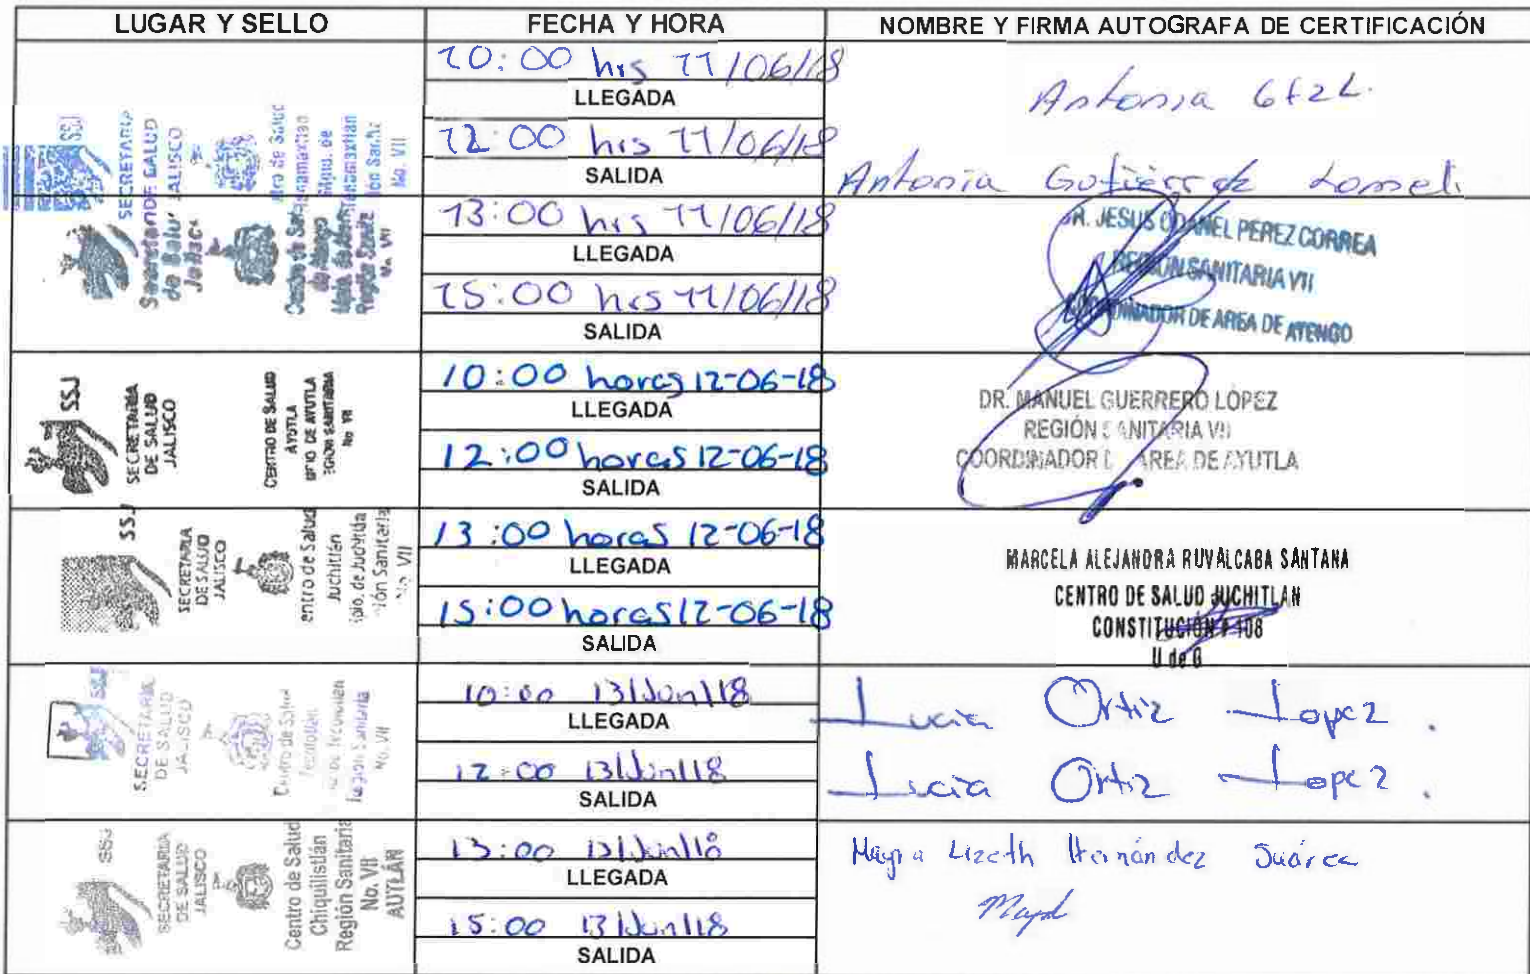 LUGAR Y SELLO
FECHA Y HORA
NOMBRE Y FIRMA AUTOGRAFA DE CERTIFICACIÓN
SSJ
SECRETARIA
DE SALUD
JALISCO
No. VII
10:00 hrs 11/06/18
LLEGADA
12:00 hrs 11/06/18
SALIDA
Antonia
Antonia Gutiérrez Lomeli
Jalisco
No. VII
13:00 hrs 11/06/18
LLEGADA
15:00 hrs 11/06/18
SALIDA
DR. JESUS ODANEL PEREZ CORREA
REGION SANITARIA VII
COORDINADOR DE AREA DE ATENGO
SSJ
SECRETARIA
DE SALUD
JALISCO
CENTRO DE SALUD
AYUTLA
MPIO DE AYUTLA
REGION SANITARIA
No VII
10:00 horas 12-06-18
LLEGADA
12:00 horas 12-06-18
SALIDA
DR. MANUEL GUERRERO LÓPEZ
REGIÓN SANITARIA VII
COORDINADOR AREA DE AYUTLA
SSJ
SECRETARIA
DE SALUD
JALISCO
entro de Salud
Juchitlán
pio. de Juchitlán
ión Sanitaria
No. VII
13:00 horas 12-06-18
LLEGADA
15:00 horas 12-06-18
SALIDA
MARCELA ALEJANDRA RUVALCABA SANTANA
CENTRO DE SALUD JUCHITLAN
CONSTITUCION # 108
U de G
SSJ
SECRETARIA
DE SALUD
JALISCO
Centro de Salud
Tecolotlán
Región Sanitaria
No. VII
10:00 13/Jun/18
LLEGADA
12:00 13/Jun/18
SALIDA
Lucia Ortiz Lopez.
Lucia Ortiz Lopez.
SSJ
SECRETARIA
DE SALUD
JALISCO
Centro de Salud
Chiquilistlán
Región Sanitaria
No. VII
AUTLÁN
13:00 13/Jun/18
LLEGADA
15:00 13/Jun/18
SALIDA
Mayra Lizeth Hernández Suárez